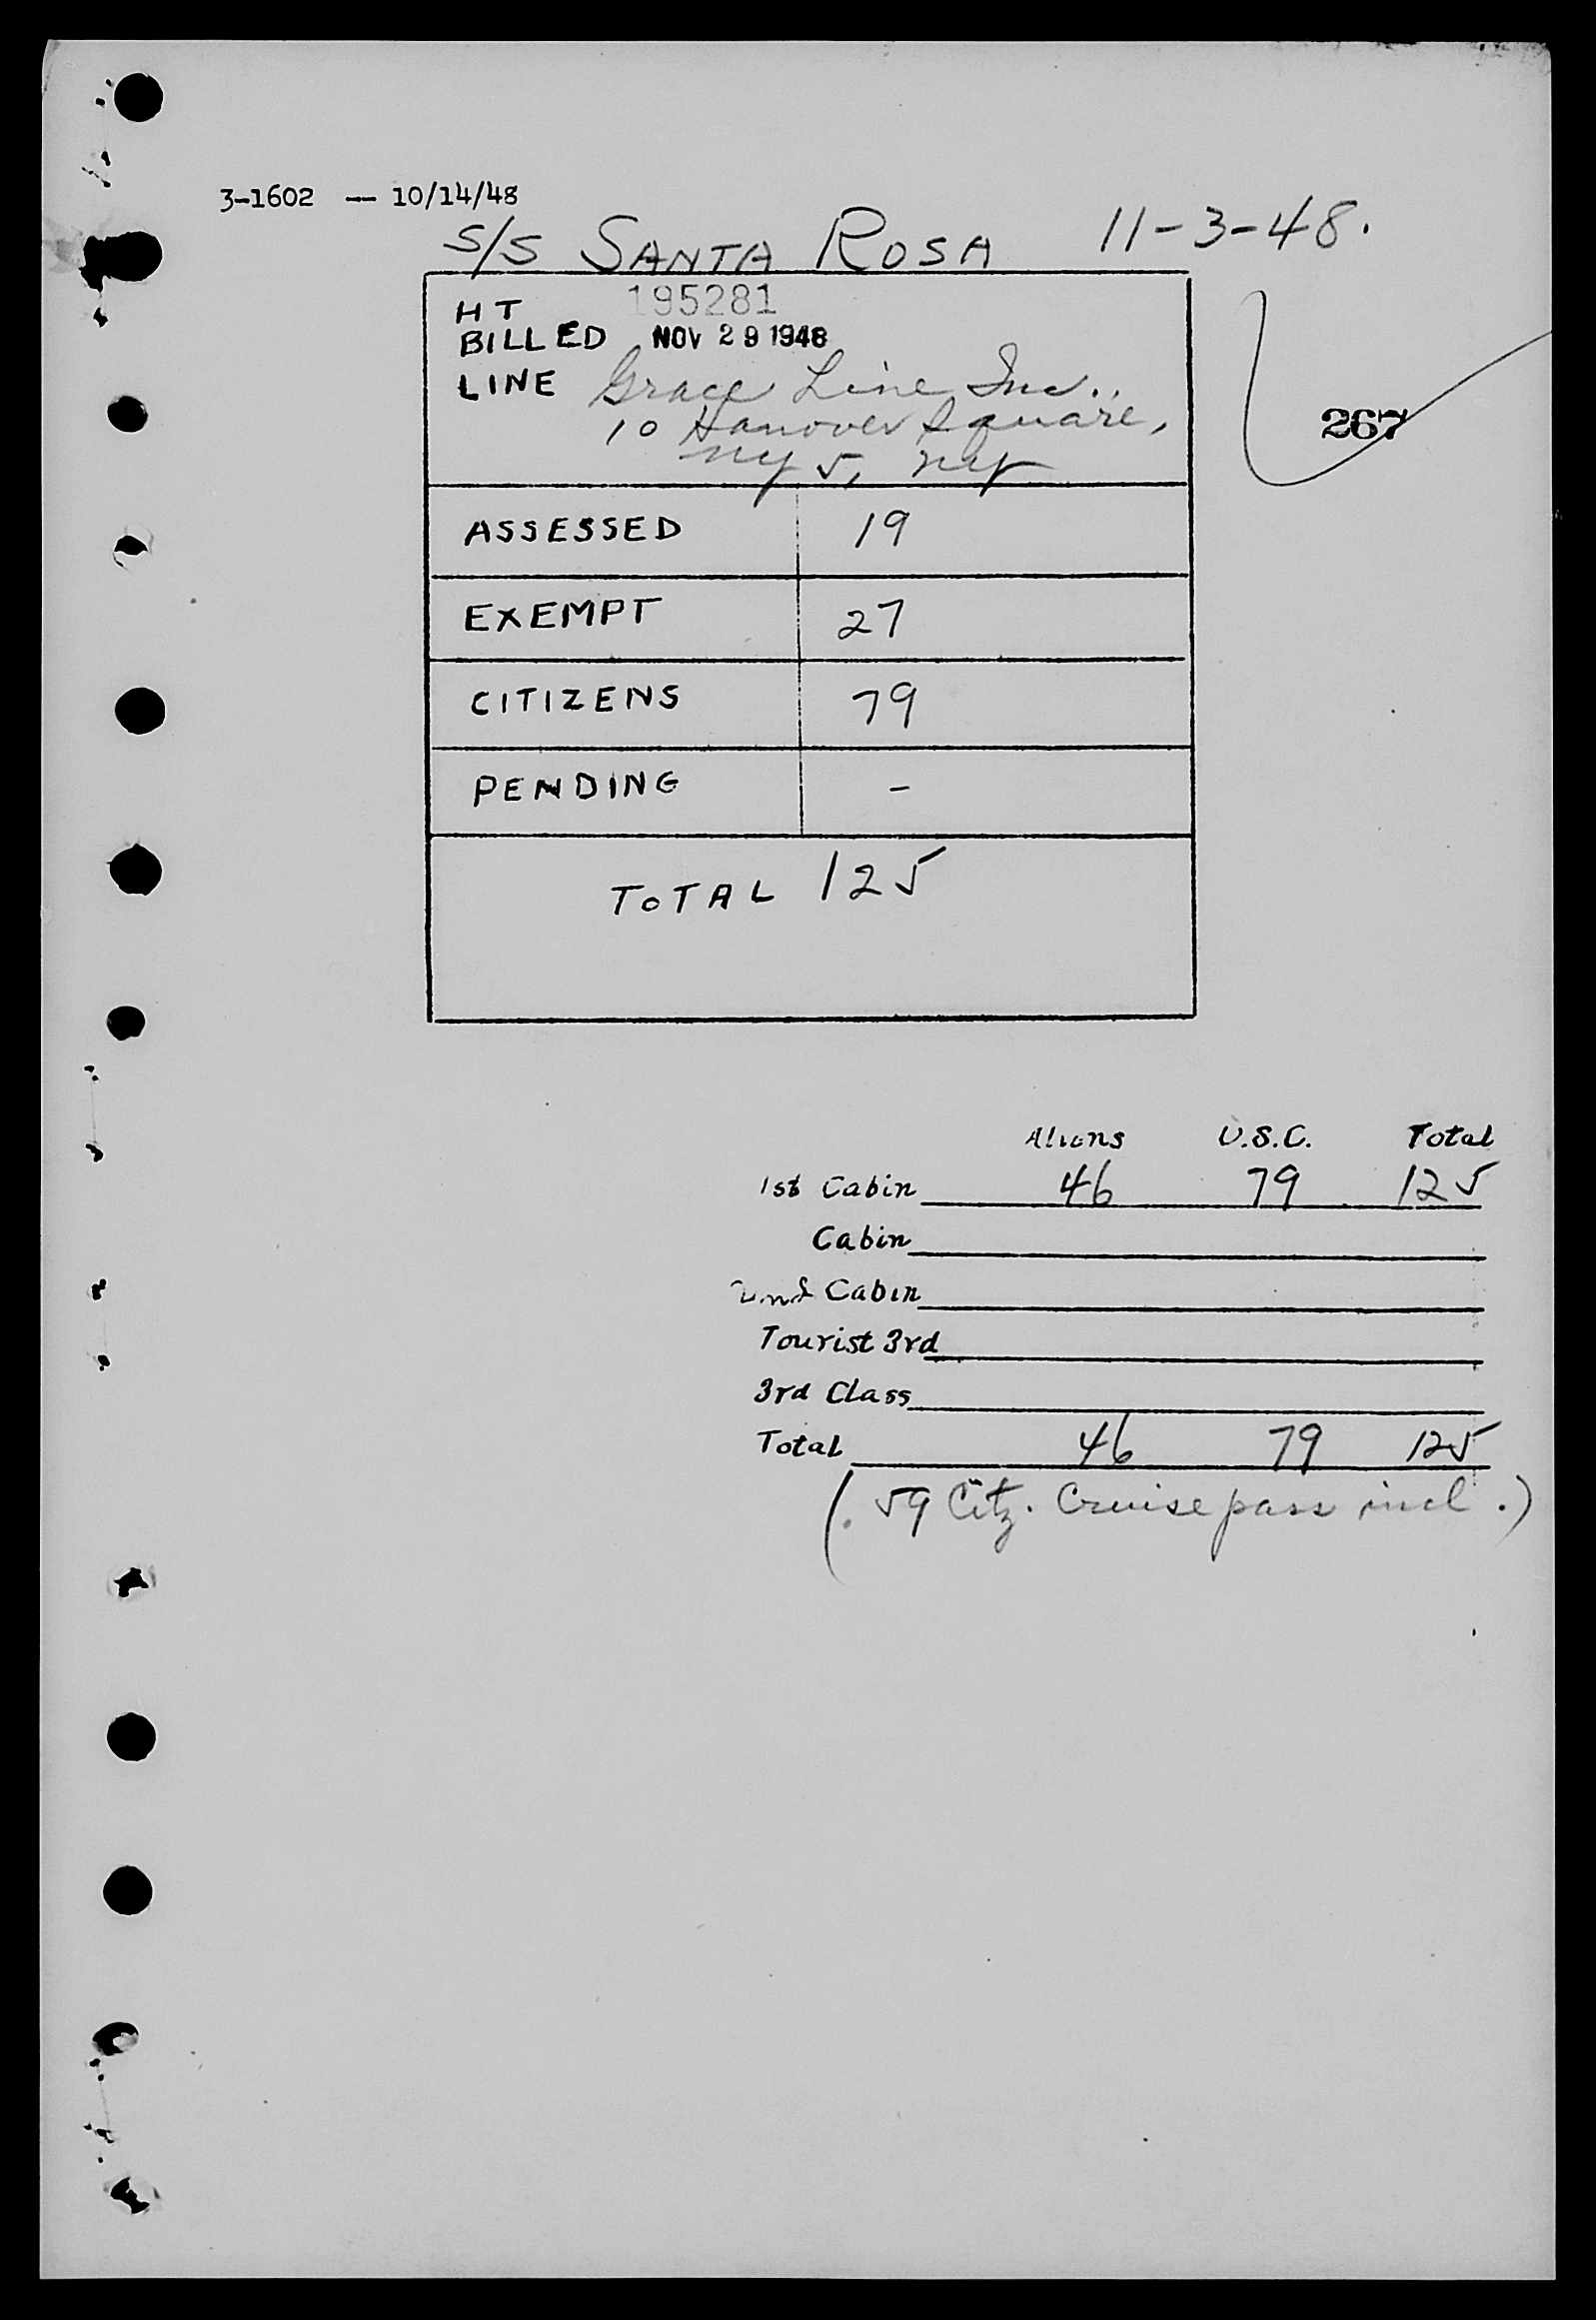 3-1602 — 10/14/48
S/S SANTA ROSA 11-3-48.
HT 195281
BILLED NOV 29 1948
LINE Grace Line Inc.,
10 Hanover Square,
NY 5, NY
267
ASSESSED 19
EXEMPT 27
CITIZENS 79
PENDING -
TOTAL 125
Aliens U.S.C. Total
1st Cabin 46 79 125
Cabin
2nd Cabin
Tourist 3rd
3rd Class
Total 46 79 125
(59 Citz. Cruise pass incl.)